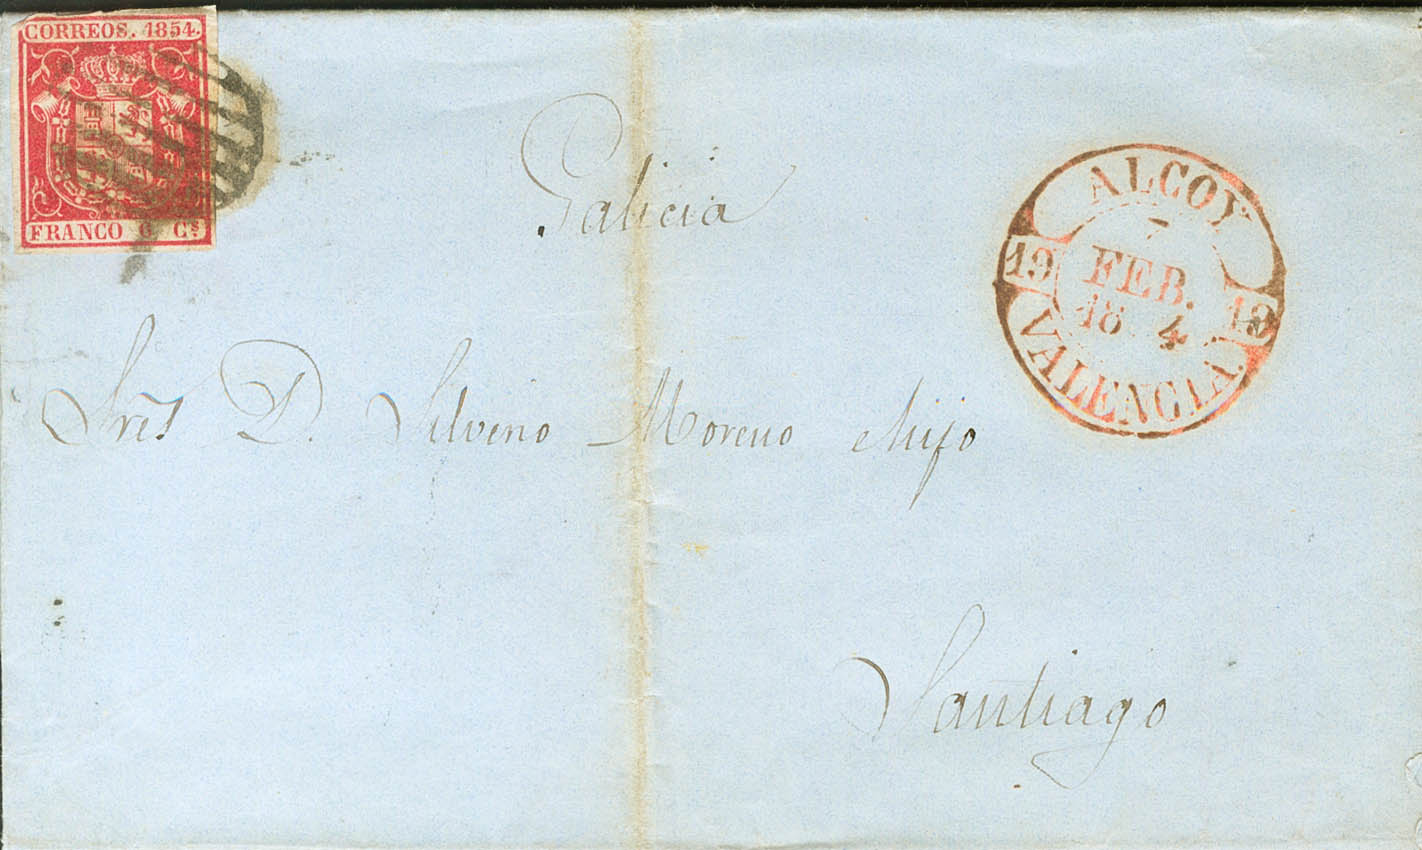 CORREOS. 1854.
FRANCO 6 Cs
Galicia
ALCOY
7
FEB.
19 19
18 4
VALENCIA.
Sres D. Silveno Moreno é hijo
Santiago